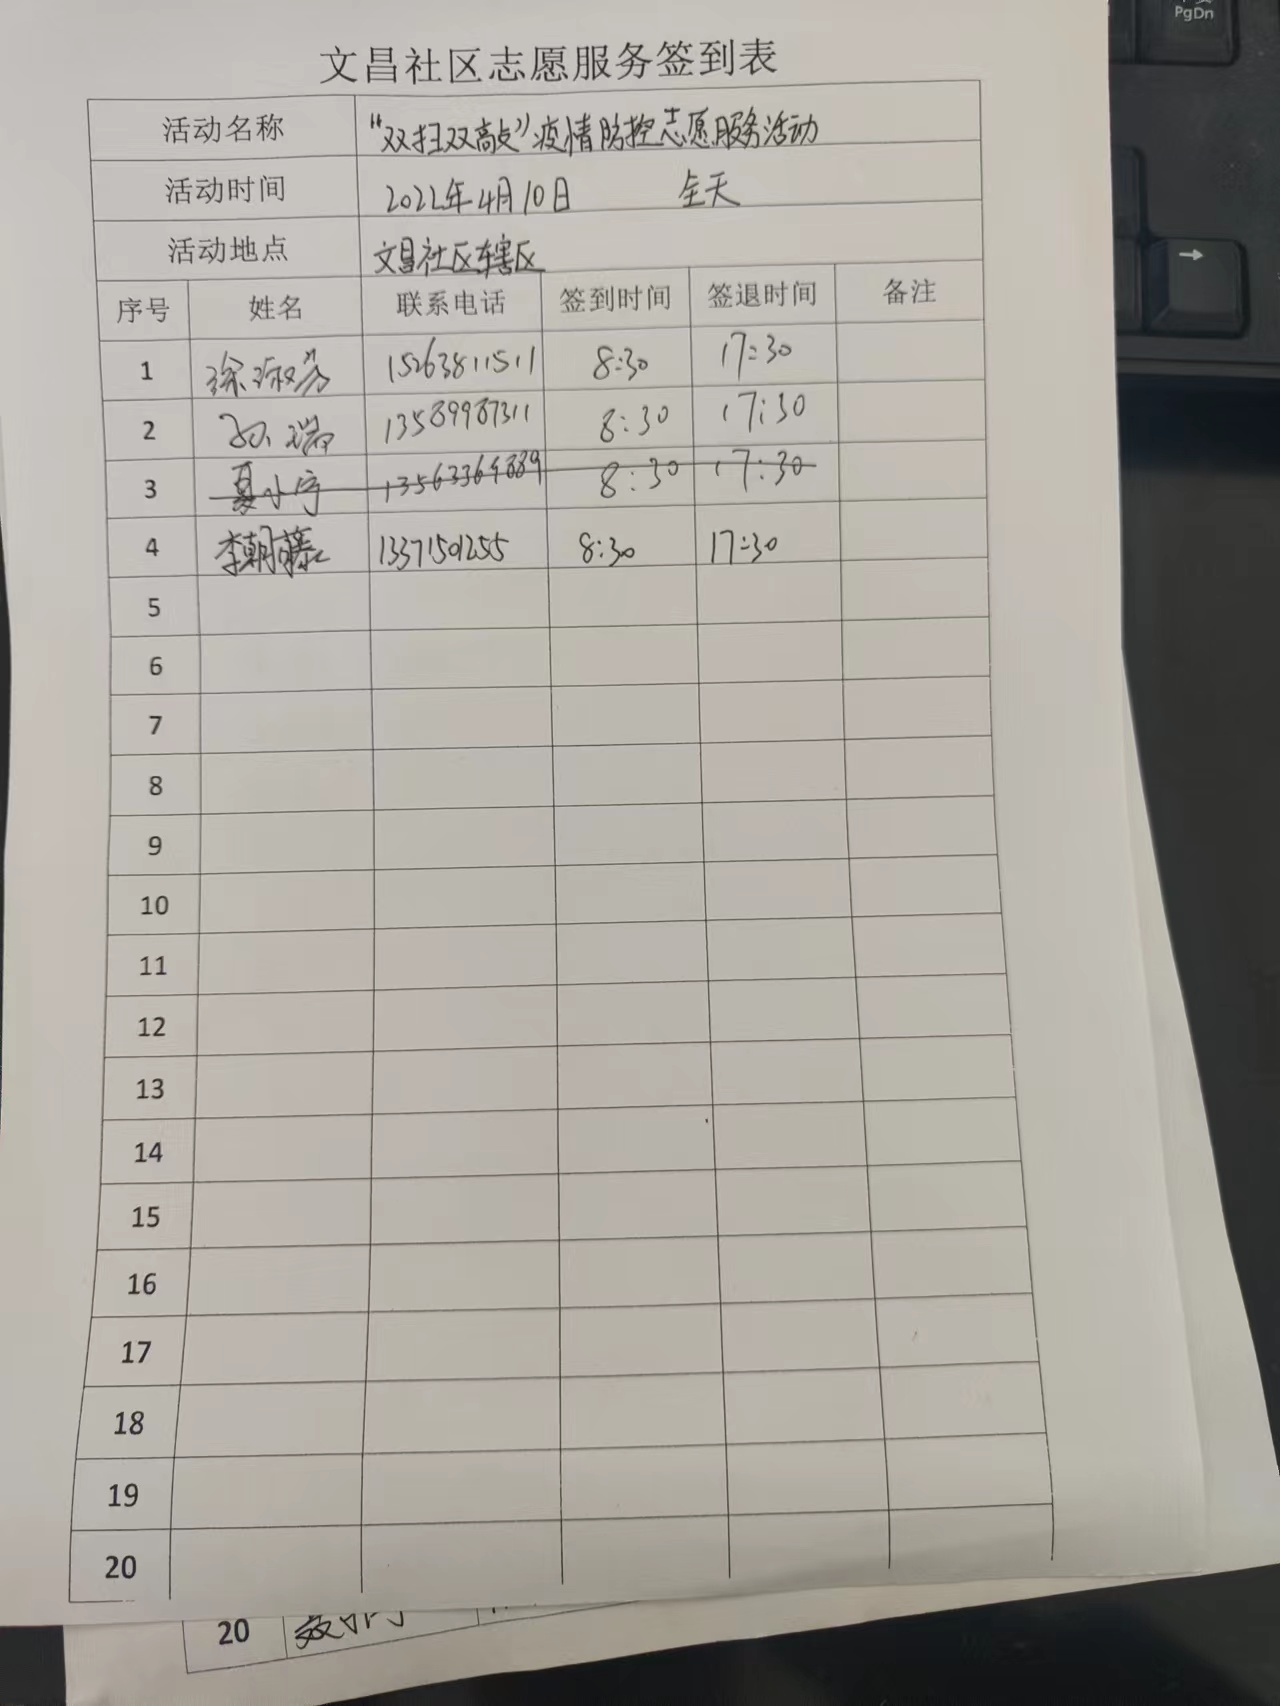 PgDn
文昌社区志愿服务签到表
活动名称 “双扫双敲”疫情防控志愿服务活动
活动时间 2022年4月10日 全天
活动地点 文昌社区辖区
序号 姓名 联系电话 签到时间 签退时间 备注
1 徐淑芬 15263811511 8:30 17:30
2 孙瑞 13589987311 8:30 17:30
3 夏小宁 8:30 17:30
4 李朝藤 13371501255 8:30 17:30
5
6
7
8
9
10
11
12
13
14
15
16
17
18
19
20
20